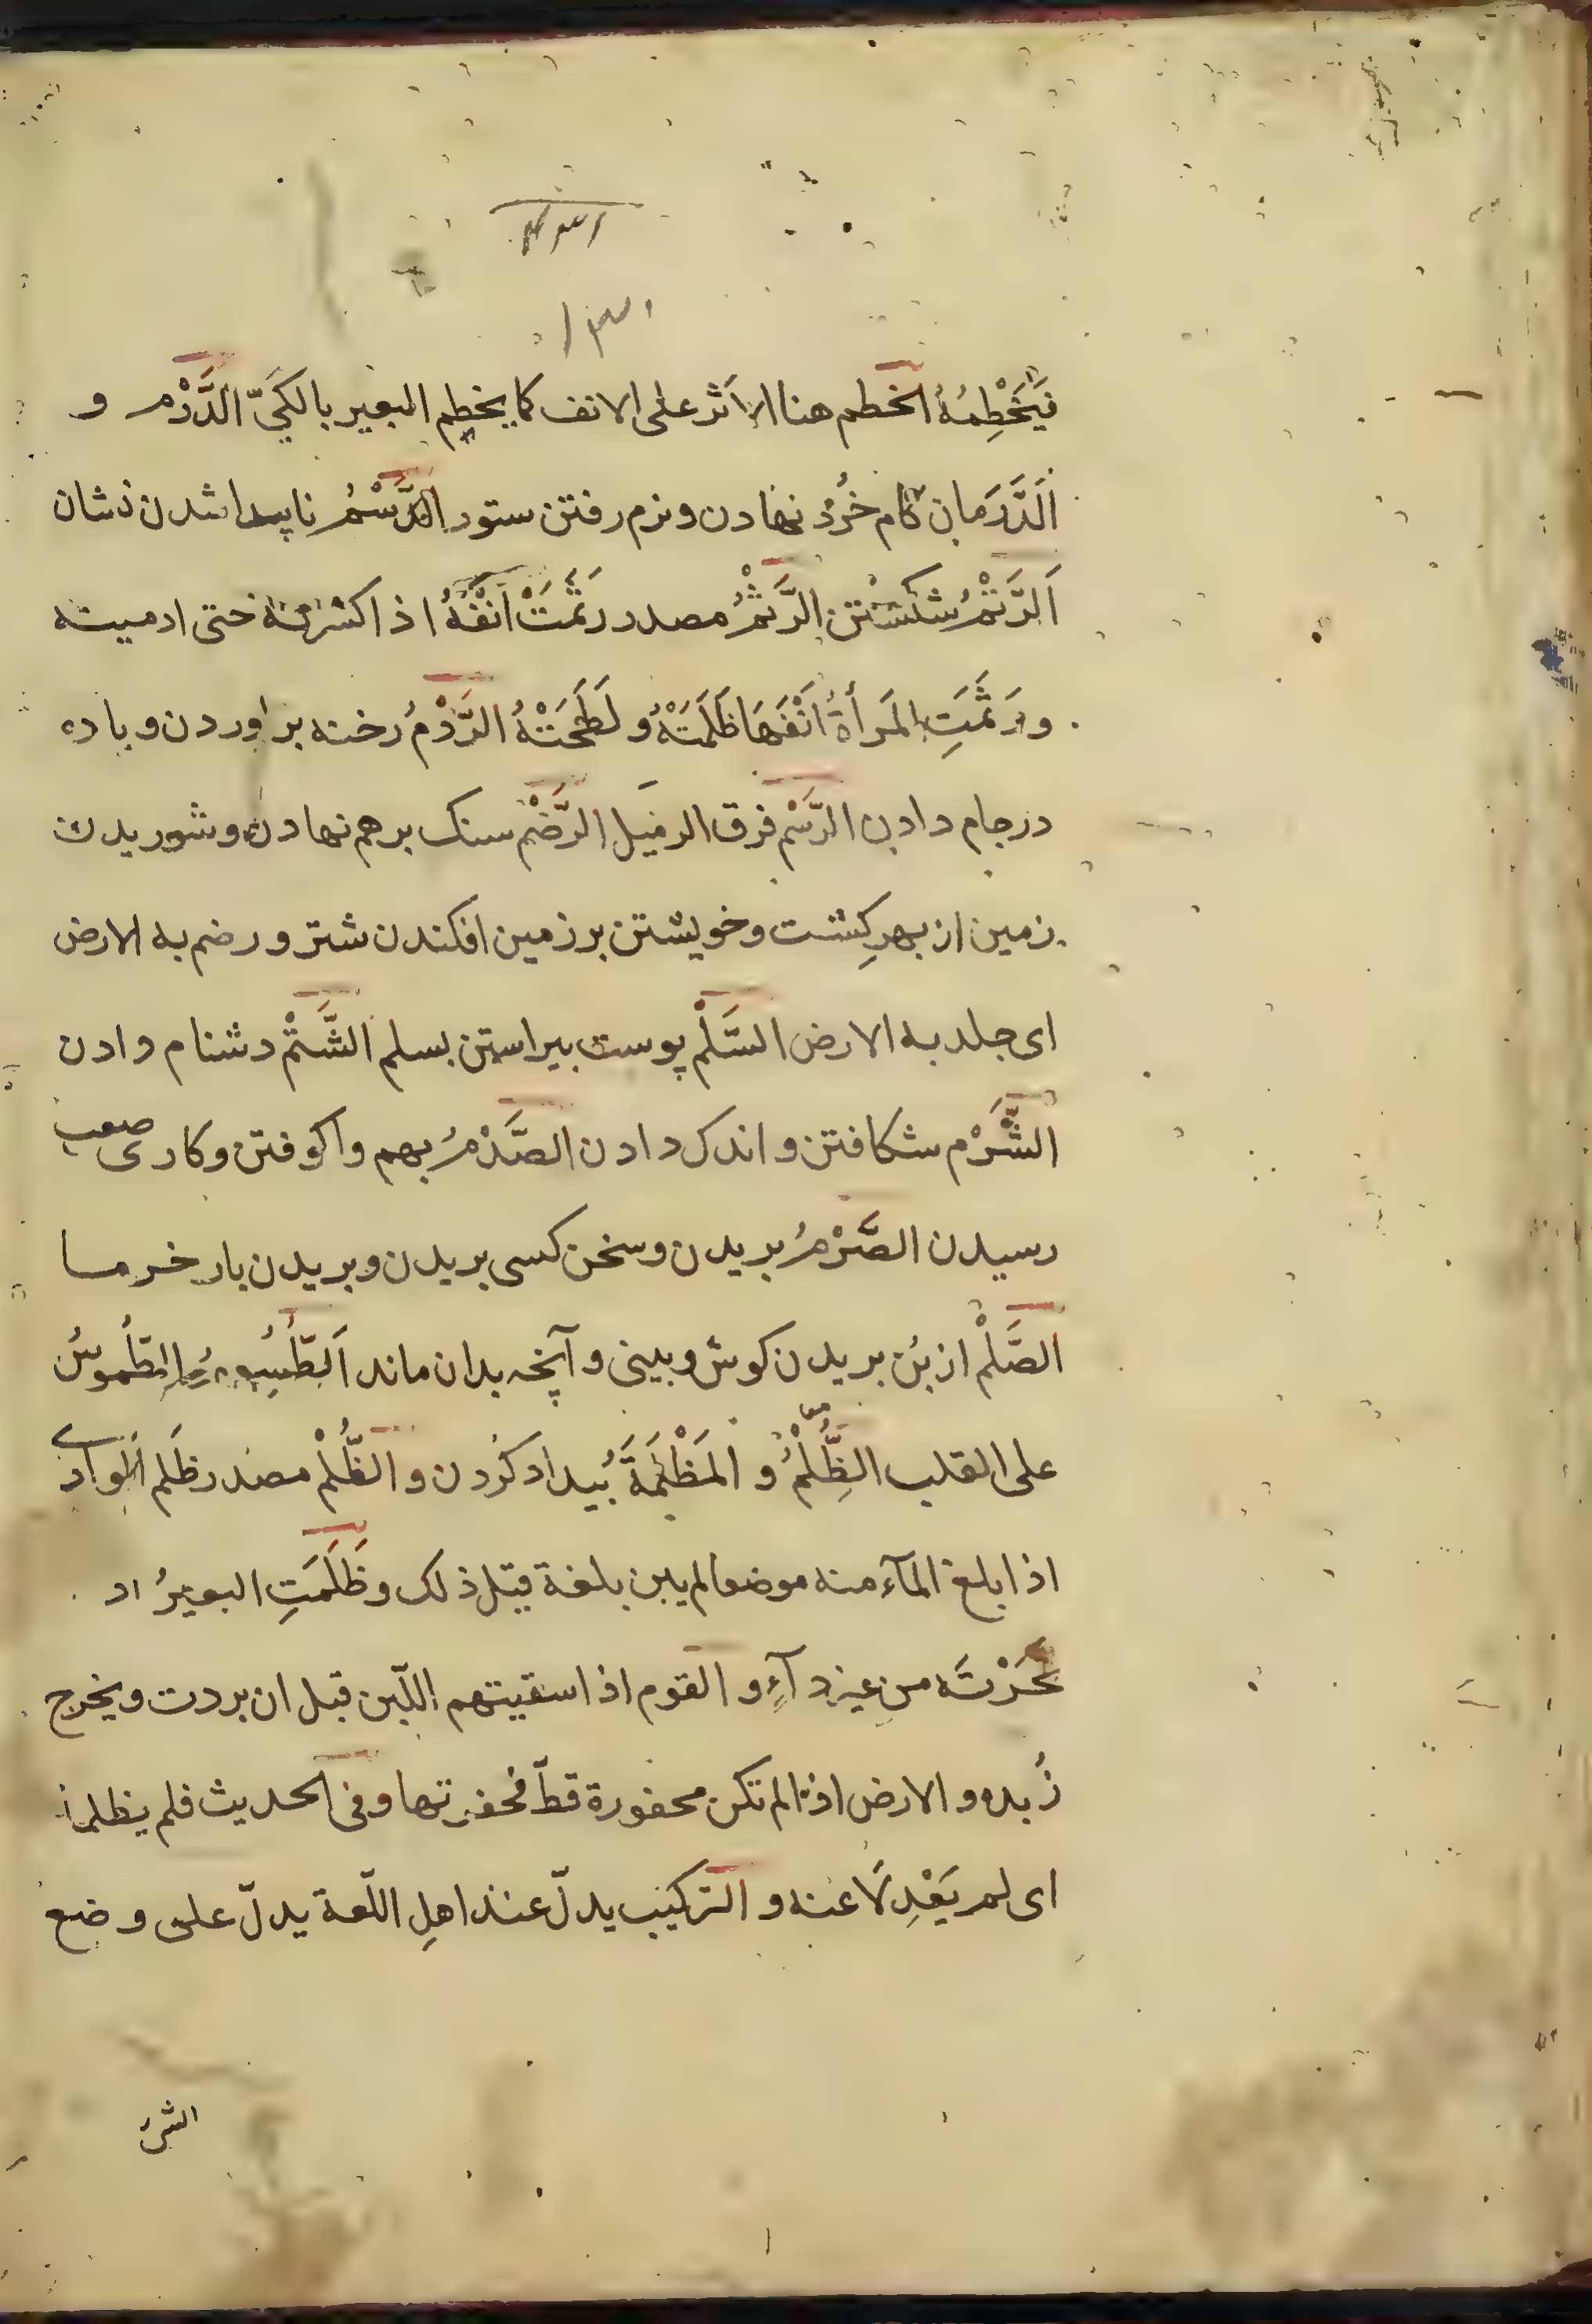 ۱۳۱
فَيَخْطِمُهُ الخطم هنا الاَثر على الانف كما يخطم البعير بالكَيّ الدَّرْم و
اَلدَّرَمان كام خُرد نهادن و نرم رفتن ستور الدَّسْمُ ناپيدا شدن نشان
اَلرَّتْمُ شكستن الرَّثْمُ مصدر رَثَمْتَ اَنْفَهُ اذا كسرته حتى ادميته
و رَثَمَتِ المَرأةُ اَنْفَهَا طَلَمَتْهُ و لَطَخَتْهُ الرَّدْمُ رخنه براوردن و باده
در جام دادن الرَّسْم فوق الذميل الرَّضْم سنك برهم نهادن و شوريدن
زمين از بهر كِشت و خويشتن بر زمين افكندن شتر و رضم به الارض
اى جلد به الارض السَّلْم پوست بيراستن بسلم الشَّتْم دشنام دادن
الشَّرْم شكافتن و اندك دادن الصَّدْمُ بهم واكوفتن و كارى صعب
رسيدن الصَّرْمُ بريدن و سخن كسى بريدن و بريدن بار خرما
الصَّلْم از بُن بريدن كوش و بينى و آنچه بدان ماند اَلطُّسُومُ الطُّموسُ
على القلب الظُّلْمُ و المَظْلَمَةُ بيداد كردن و الظُّلْم مصدر ظَلَم الوادى
اذا بلغ المآء منه موضعا لم يكن بلغه قبل ذلك و ظَلَمَتِ البعيرُ اذ
نَحَرْتَه من غير دآءٍ و القوم اذا سقيتهم اللّبن قبل ان بردت و يخرج
زُبده و الارض اذا لم تكن محفورة قطّ فحفرتها و فى الحديث فلم يظلما
اى لم يَعْدِلَا عنه و التركيب يدلّ عند اهلِ اللّغة يدلّ على وضع
الشئ